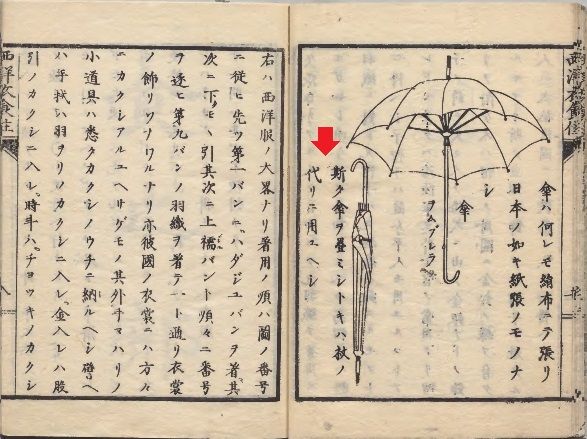 西洋衣食住
傘ハ何レモ絹布ニテ張リ
日本ノ如キ紙張ノモノナ
シ
傘
ヲムブレラ
斯ク傘ヲ畳ミシトキハ杖ノ
代リニ用ユヘシ
右ハ西洋服ノ大畧ナリ着用ノ順ハ圖ノ番号
ニ従ヒ先ツ第一バンニハダジユバンヲ着其
次ニ下モヽ引其次ニ上襦バント順々ニ番号
ヲ逐ヒ第九バンノ羽織ヲ着テ一ト通リ衣裳
ノ飾リソナワルナリ亦彼國ノ衣裳ニハ方々
ニカクシアルユヘサゲモノ其外手マハリノ
小道具ハ悉クカクシノウチニ納ルヘシ譬ヘ
ハ手拭ハ羽ヲリノカクシニ入レ金入レハ股
引ノカクシニ入レ時斗ハチヨツキノカクシ
西洋衣食住
八